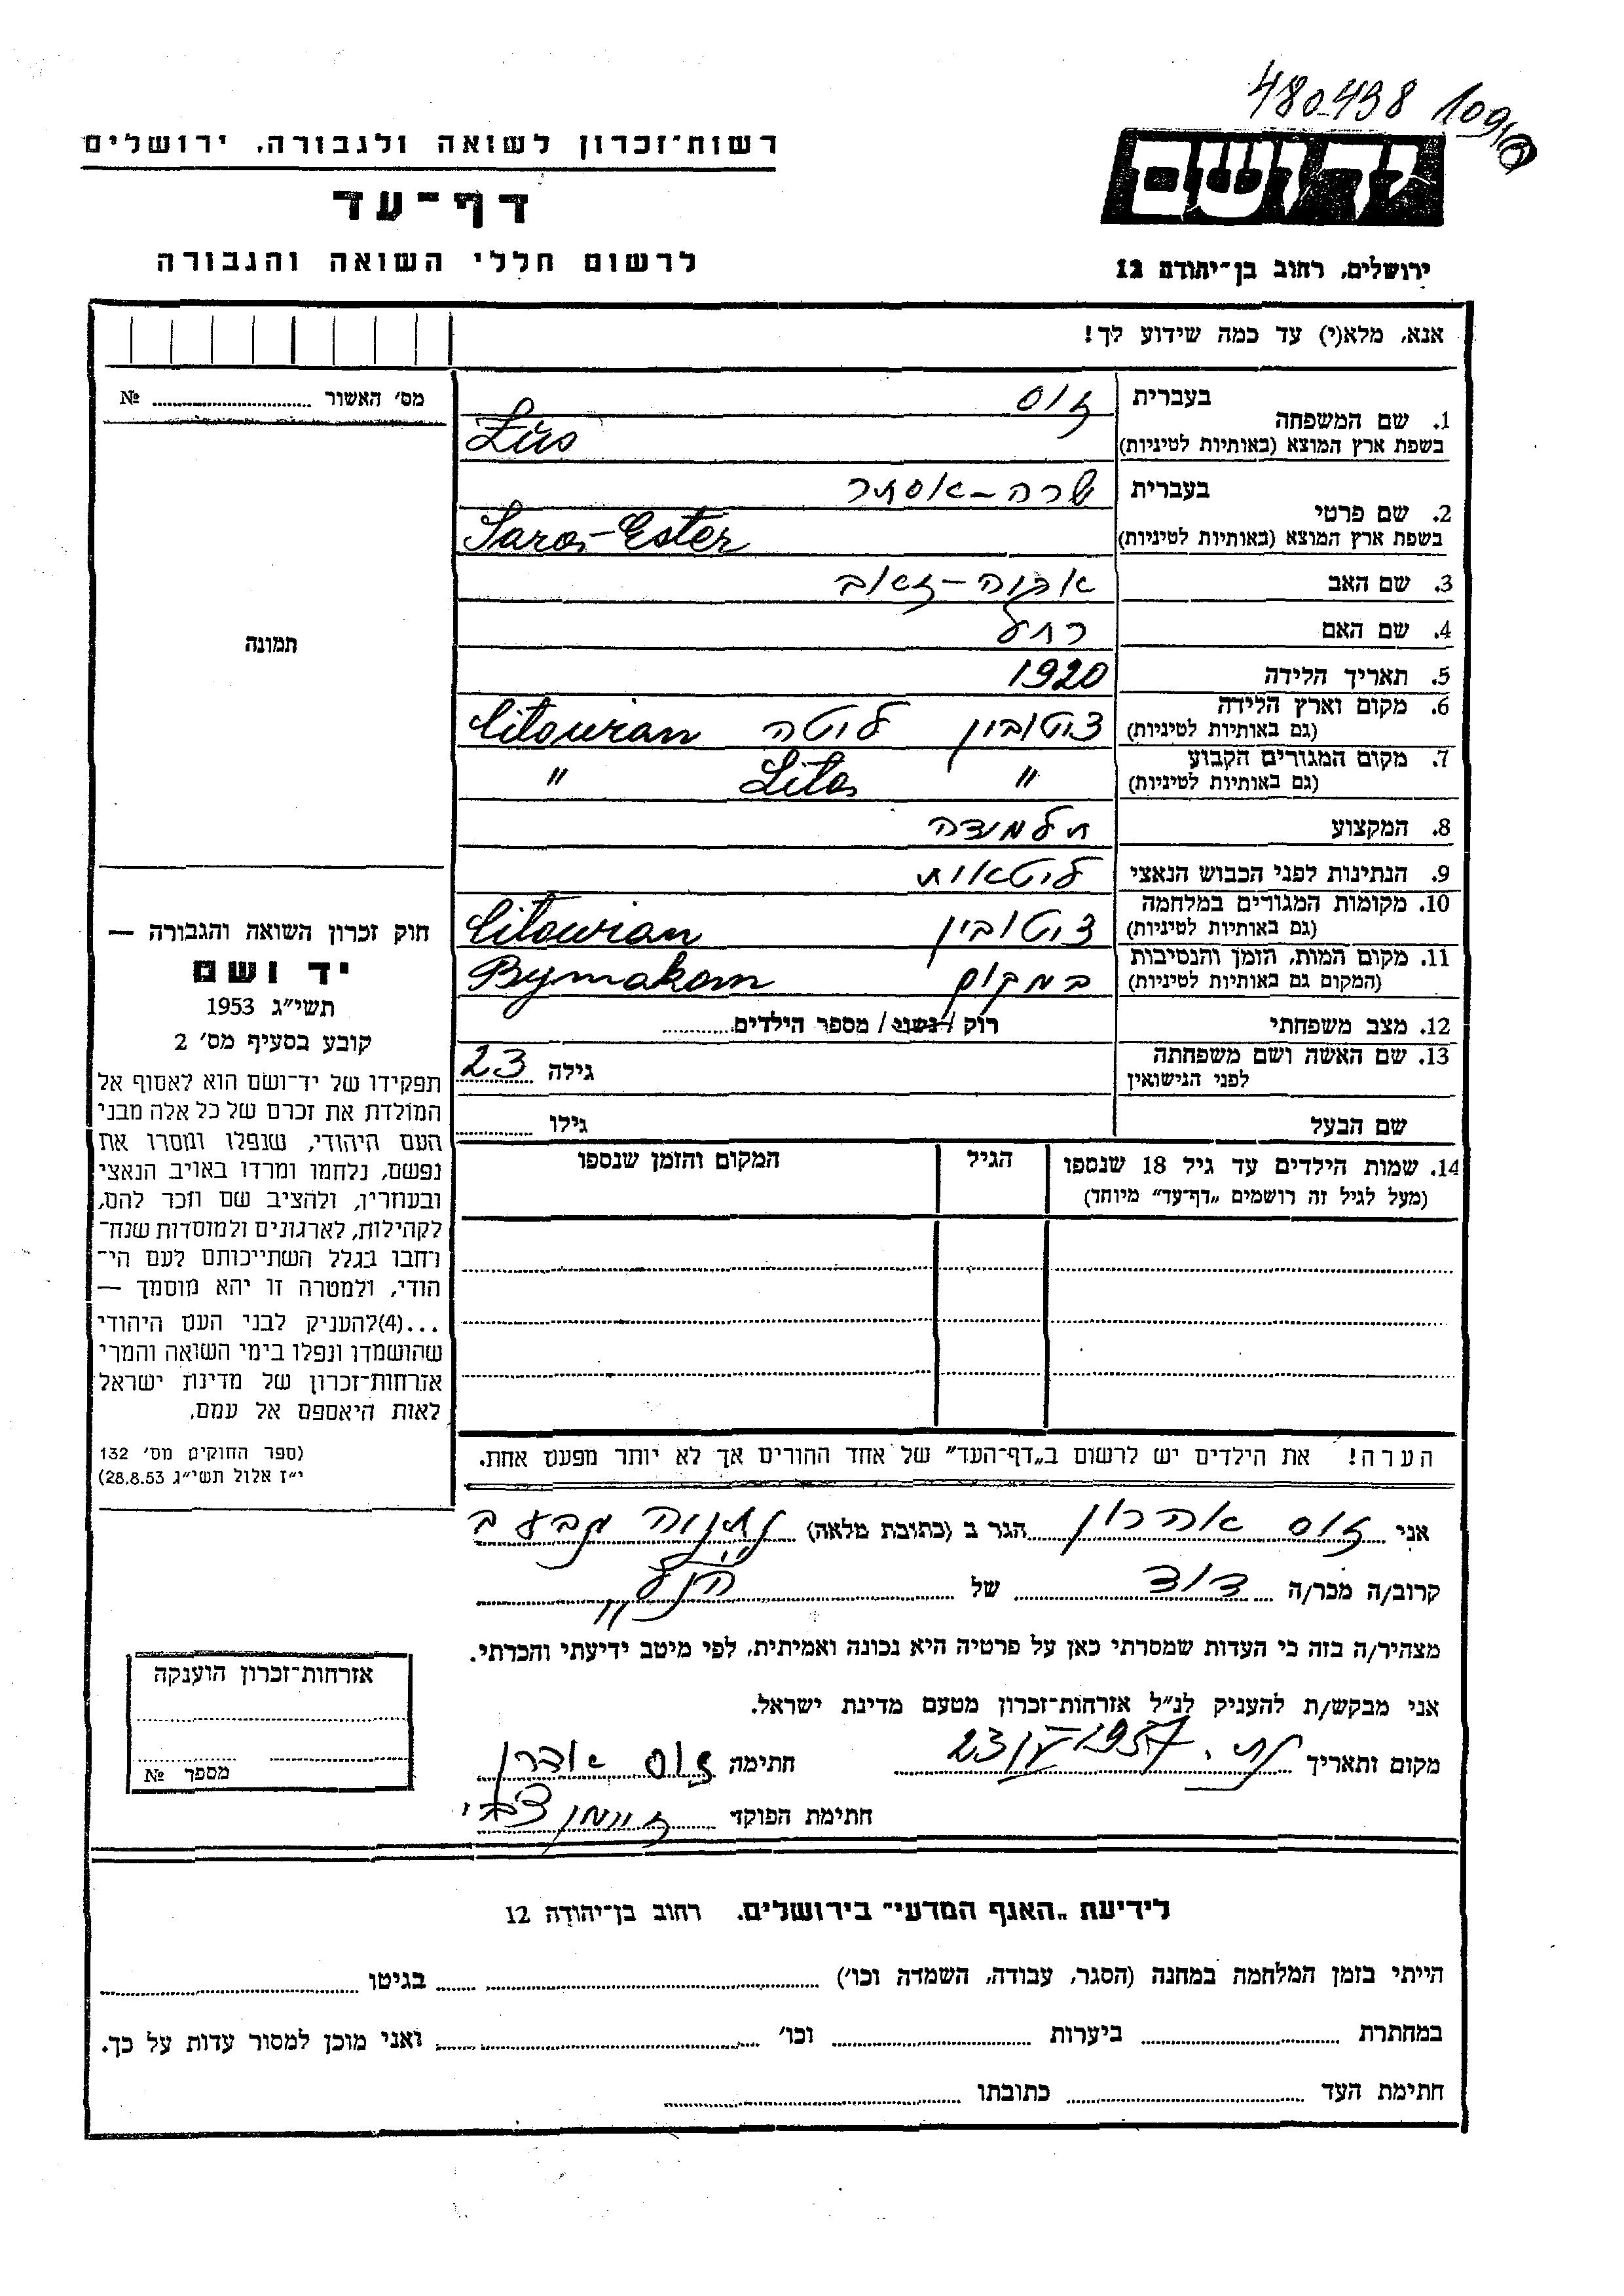 480438 109
רשות־זכרון לשואה ולגבורה, ירושלים
דף־עד
לרשום חללי השואה והגבורה
ידושם
ירושלים, רחוב בן־יהודה 12
אנא, מלא(י) עד כמה שידוע לך!
מס׳ האשור № 
תמונה
1. שם המשפחה
בעברית זוס
בשפת ארץ המוצא (באותיות לטיניות) Zus
2. שם פרטי
בעברית שרה-אסתר
בשפת ארץ המוצא (באותיות לטיניות) Sara-Ester
3. שם האב אריה-זאב
4. שם האם רחל
5. תאריך הלידה 1920
6. מקום וארץ הלידה ציטובין ליטה Citowian
(גם באותיות לטיניות)
7. מקום המגורים הקבוע " Lita "
(גם באותיות לטיניות)
8. המקצוע תלמידה
9. הנתינות לפני הכבוש הנאצי ליטאית
10. מקומות המגורים במלחמה ציטובין Citowian
(גם באותיות לטיניות)
11. מקום המות, הזמן והנסיבות במקום Bymakom
(המקום גם באותיות לטיניות)
12. מצב משפחתי רוק / נשוי / מספר הילדים
13. שם האשה ושם משפחתה גילה 23
לפני הנישואין
שם הבעל גילו
14. שמות הילדים עד גיל 18 שנספו הגיל המקום והזמן שנספו
(מעל לגיל זה רושמים „דף־עד” מיוחד)
חוק זכרון השואה והגבורה —
יד ושם
תשי״ג 1953
קובע בסעיף מס׳ 2
תפקידו של יד־ושם הוא לאסוף אל
המולדת את זכרם של כל אלה מבני
העם היהודי, שנפלו ומסרו את
נפשם, נלחמו ומרדו באויב הנאצי
ובעוזריו, ולהציב שם וזכר להם,
לקהילות, לארגונים ולמוסדות שנח־
רחבו בגלל השתייכותם לעם הי־
הודי, ולמטרה זו יהא מוסמך —
...(4) להעניק לבני העם היהודי
שהושמדו ונפלו בימי השואה והמרי
אזרחות־זכרון של מדינת ישראל
לאות היאספם אל עמם.
(ספר החוקים מס׳ 132
י״ז אלול תשי״ג 28.8.53)
הערה! את הילדים יש לרשום ב„דף־העד” של אחד ההורים אך לא יותר מפעם אחת.
אני זוס אהרון הגר ב (כתובת מלאה) נתניה
קרוב/ה מכר/ה דוד של הנ"ל
מצהיר/ה בזה כי העדות שמסרתי כאן על פרטיה היא נכונה ואמיתית, לפי מיטב ידיעתי והכרתי.
אני מבקש/ת להעניק לנ״ל אזרחות־זכרון מטעם מדינת ישראל.
מקום ותאריך נת. 23/IV 1957 חתימה זוס אהרן
חתימת הפוקד
אזרחות־זכרון הוענקה
מספר №
לידיעת „האגף המדעי” בירושלים, רחוב בן־יהודה 12
הייתי בזמן המלחמה במחנה (הסגר, עבודה, השמדה וכו׳) בגיטו
במחתרת ביערות וכו׳ ואני מוכן למסור עדות על כך.
חתימת העד כתובתו